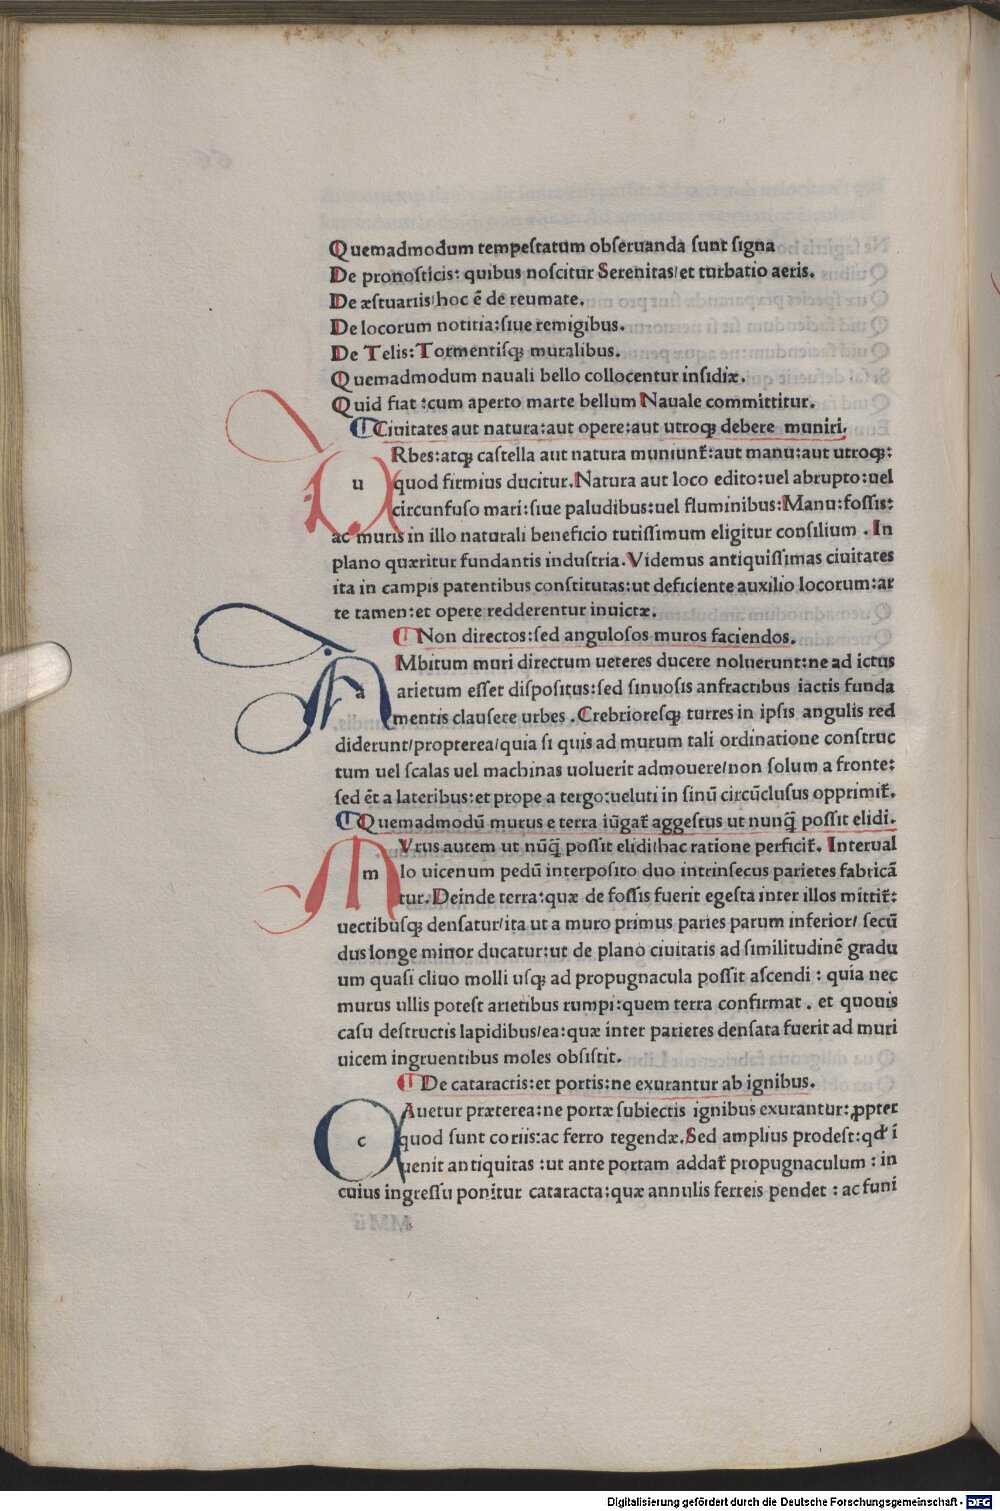 Quemadmodum tempeſtatum obſeruanda ſunt ſigna
De pronoſticis: quibus noſcitur Serenitas/et turbatio aeris.
De æſtuariis/hoc ē de reumate.
De locorum notitia:ſiue remigibus.
De Telis: Tormentiſqꝫ muralibus.
Quemadmodum nauali bello collocentur inſidiæ.
Quid fiat :cum aperto marte bellum Nauale committitur.
¶ Ciuitates aut natura:aut opere:aut utroqꝫ debere muniri.
u Rbes:atqꝫ caſtella aut natura muniunt̃:aut manu:aut utroqꝫ:
quod firmius ducitur. Natura aut loco edito:uel abrupto:uel
circunfuſo mari:ſiue paludibus:uel fluminibus: Manu:foſſis:
ac muris in illo naturali beneficio tutiſſimum eligitur conſilium . In
plano quæritur fundantis induſtria. Videmus antiquiſſimas ciuitates
ita in campis patentibus conſtitutas:ut deficiente auxilio locorum:ar
te tamen:et opere redderentur inuictæ.
¶ Non directos:ſed anguloſos muros faciendos.
a Mbitum muri directum ueteres ducere noluerunt:ne ad ictus
arietum eſſet diſpoſitus:ſed ſinuoſis anfractibus iactis funda
mentis clauſere urbes . Crebrioreſqꝫ turres in ipſis angulis red
diderunt/propterea/quia ſi quis ad murum tali ordinatione conſtruc
tum uel ſcalas uel machinas uoluerit admouere/non ſolum a fronte:
ſed ēt a lateribus:et prope a tergo:ueluti in ſinū circūcluſus opprimit̃.
¶ Quemadmodū murus e terra iūgat̃ aggeſtus ut nunq̄ poſſit elidi.
m Vrus autem ut nūq̄ poſſit elidi/hac ratione perficit̃. Interual
lo uicenum pedū interpoſito duo intrinſecus parietes fabricā
tur. Deinde terra:quæ de foſſis fuerit egeſta inter illos mittit̃:
uectibuſqꝫ denſatur/ita ut a muro primus paries parum inferior/ ſecū
dus longe minor ducatur:ut de plano ciuitatis ad ſimilitudinē gradu
um quaſi cliuo molli uſqꝫ ad propugnacula poſſit aſcendi : quia nec
murus ullis poteſt arietibus rumpi:quem terra confirmat . et quouis
caſu deſtructis lapidibus/ea:quæ inter parietes denſata fuerit ad muri
uicem ingruentibus moles obſiſtit.
¶ De cataractis:et portis:ne exurantur ab ignibus.
c Auetur præterea:ne portæ ſubiectis ignibus exurantur:ꝓpter
quod ſunt coriis:ac ferro tegendæ. Sed amplius prodeſt:qd' ī
uenit antiquitas :ut ante portam addat̃ propugnaculum : in
cuius ingreſſu ponitur cataracta:quæ annulis ferreis pendet : ac funi
Digitalisierung gefördert durch die Deutsche Forschungsgemeinschaft - DFG